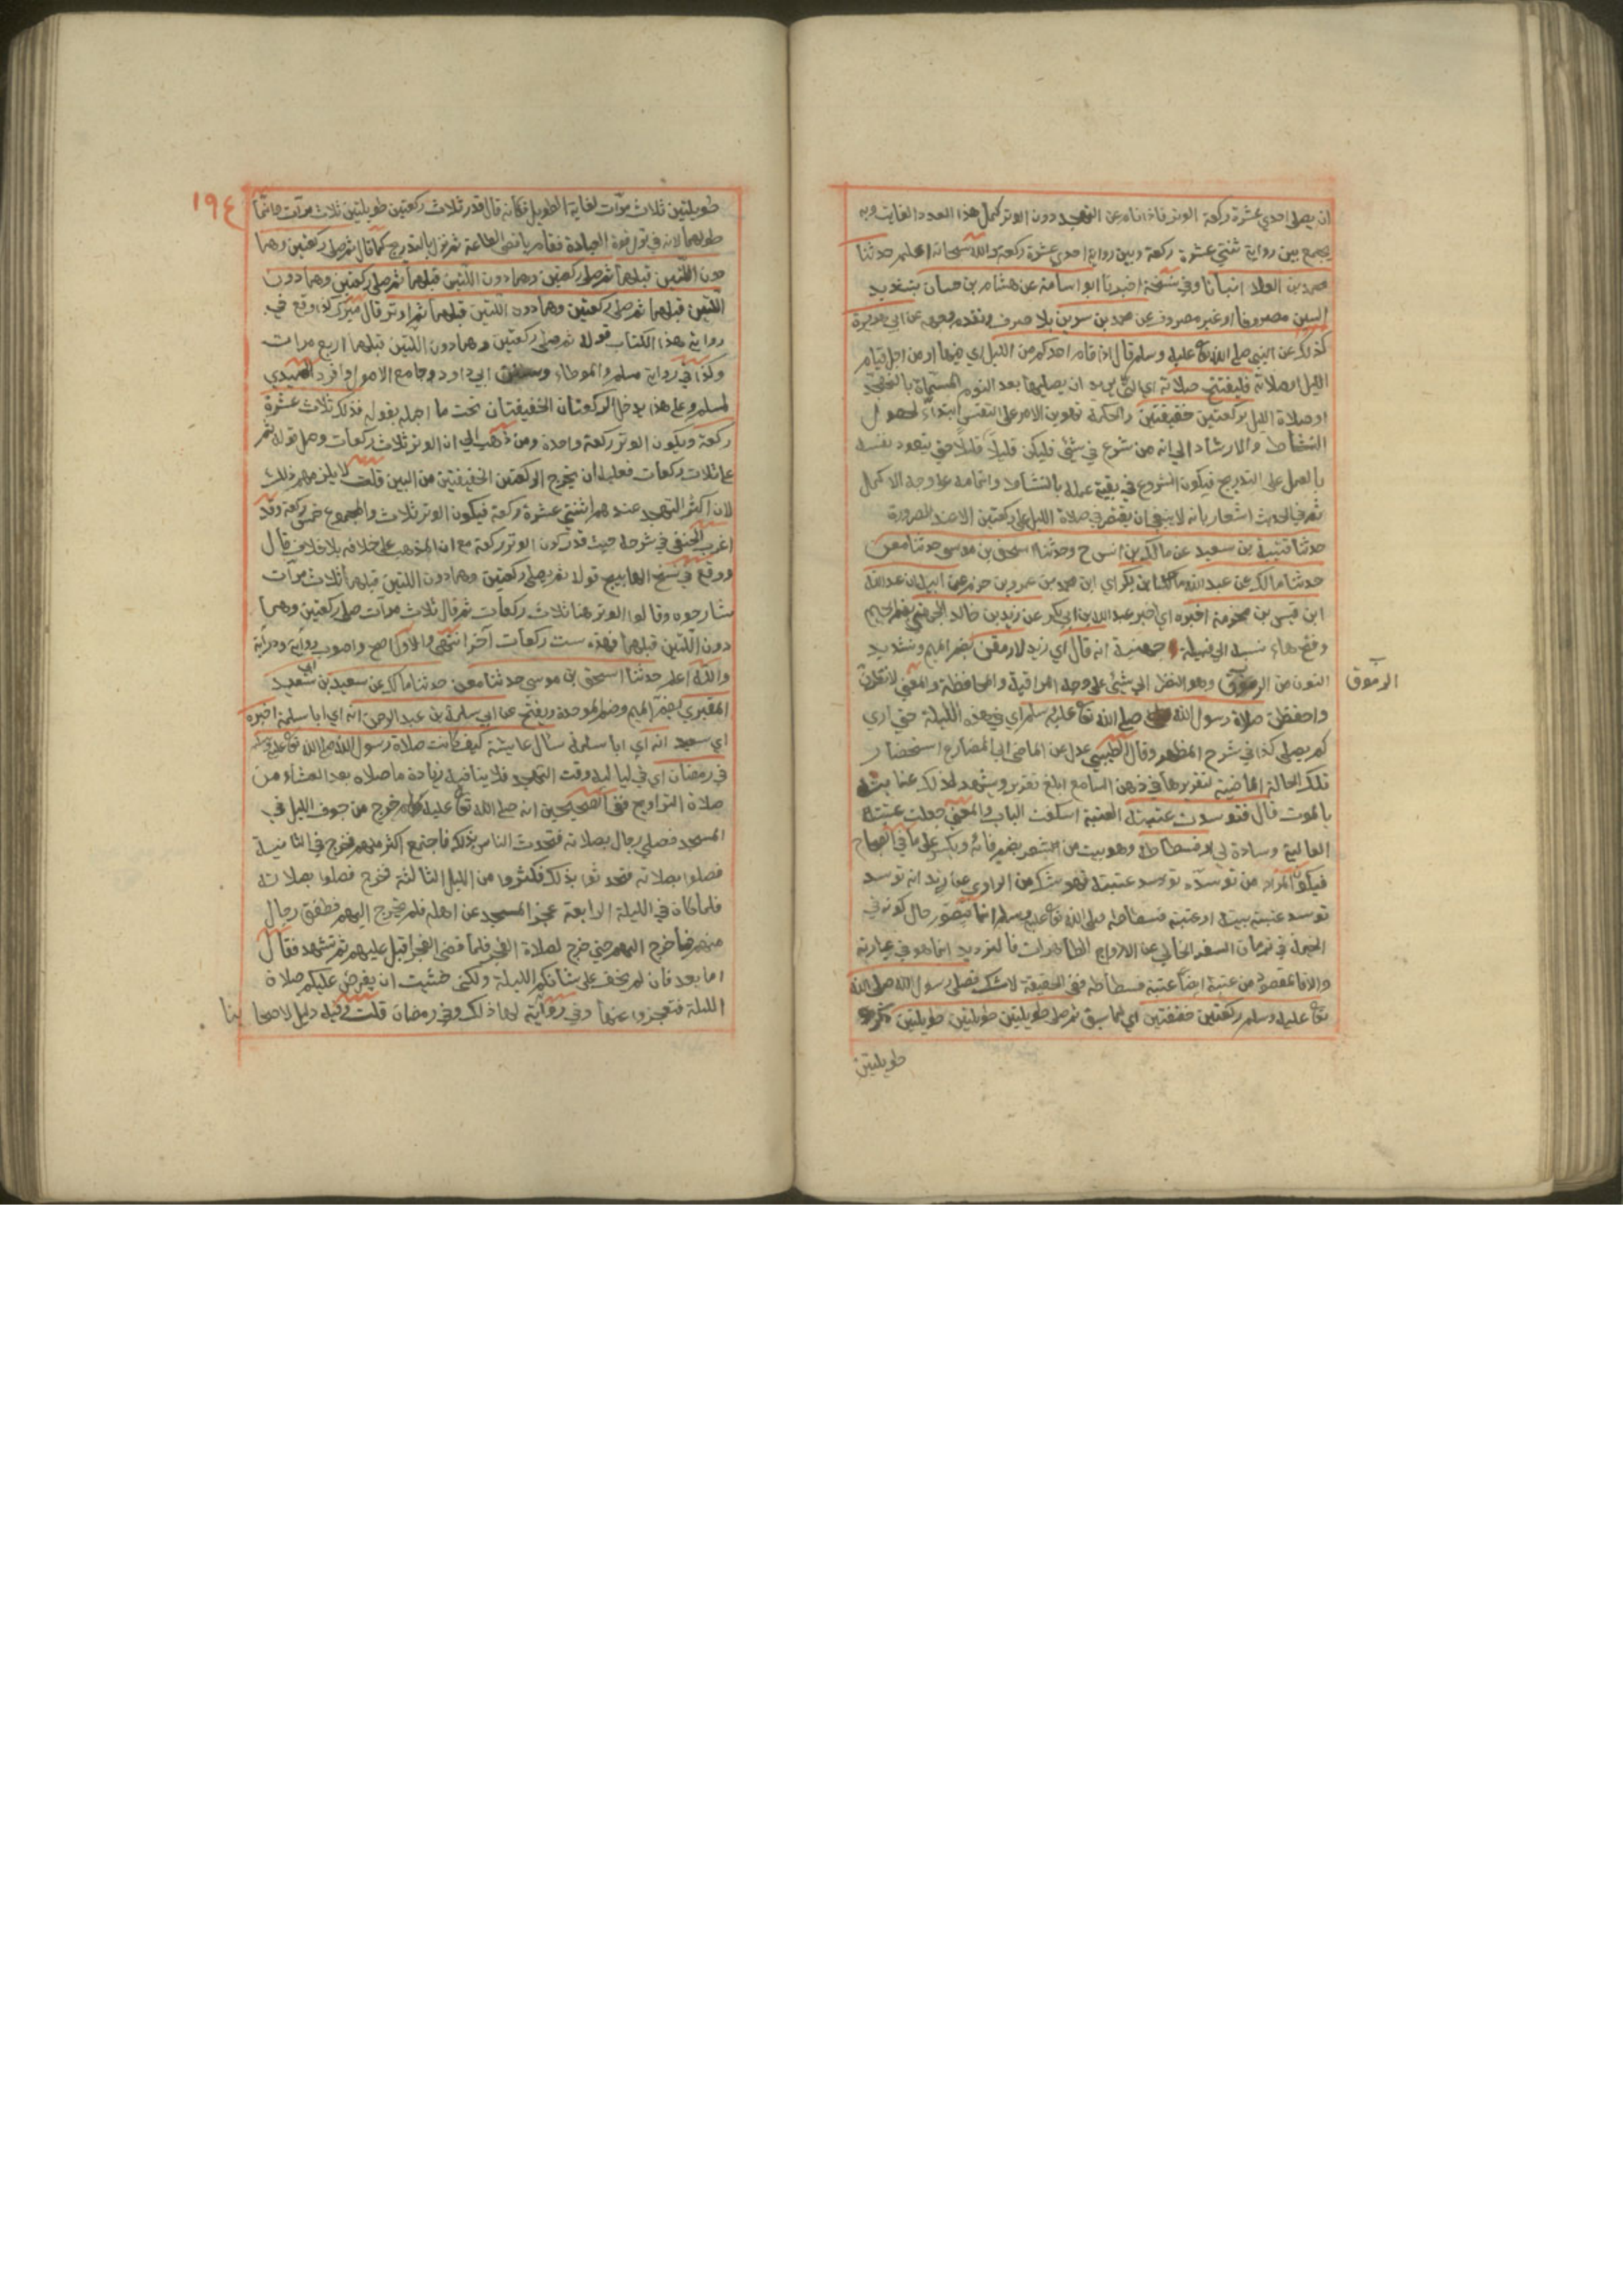 ان يصلى احدي عشرة ركعة الوتر فاذا نام عن التهجد دون الوتر كمل هذا العدد الفايت وبه
يجمع بين رواية ثنتي عشرة ركعة وبين رواية احدي عشرة ركعة والله سبحانه اعلم حدثنا
محمد بن العلا انبأنا وفي نسخة اخبرنا ابو اسامة عن هشام بن حسان بتشديد
السين مصروفا او غير مصروف عن محمد بن سرين بلا صرف وتقدم وجهه عن ابي هريرة
كذلك عن النبي صلى الله تع عليه وسلم قال اذا قام احدكم من الليل اي فيها او من اجل قيام
الليل او صلاته فليفتتح صلاته اي التي يريد ان يصليها بعد النوم المسماة بالتهجد
او صلاة الليل بركعتين خفيفتين والحكمة تهوين الامر على النفس ابتداء لحصول
النشاط والارشاد الي انه من شرع في شئ فليكن قليلا قليلا حتي يتعود نفسه
بالعمل على التدريج فيكون الشروع في بقية عمله بالنشاط واتمامه على وجه الاكمال
ثم في الحديث اشعار بانه لا ينبغي ان يقتصر في صلاة الليل على ركعتين الا عند الضرورة
حدثنا قتيبة بن سعيد عن مالك بن انس ح وحدثنا اسحق بن موسى حدثنا معن
حدثنا مالك عن عبد الله بن ابي بكر اي ابن محمد بن عمرو بن حزم عن ابيه ان عبد الله
ابن قيس بن مخرمة اخبره اي اخبر عبد الله بن ابي بكر عن زيد بن خالد الجهني بضم الجيم
وفتح هاء نسبة الي قبيلة جهينة انه قال اي زيد لارمقن بضم الميم وتشديد
النون من الرموق وهو النظر الي شئ على وجه المراقبة والمحافظة والمعني لانظرن
الرموق
واحفظن صلاة رسول الله صلى الله تع عليه وسلم اي في هذه الليلة حتي اري
كم يصلى كذا في شرح المظهر وقال الطيبي عدل عن الماضي الي المضارع استحضار
تلك الحالة الماضية لتقريرها في ذهن السامع ابلغ تقرير
بالموت قال فتوسدت عتبته العتبة اسكفت الباب والمعني جعلت عتبته
العالية وسادة لي او فسطاطه وهو بيت من الشعر بضم فائه ويكسر على ما في الصحاح
فيكون المراد من توسده توسد عتبته فهو شك من الراوي عن زيد انه توسد
توسد عتبة بيته او عتبة فسطاطه صلى الله تع عليه وسلم انما يتصور حال كونه في
الخيمة في زمان السفر الخالي عن الازواج الطاهرات فالترديد انما هو في عبارته
والا فالمقصود من عتبته ايضا عتبة فسطاطه ففي الحقيقة لا شك فصلى رسول الله صلى الله
تع عليه وسلم ركعتين خفيفتين اي لما سبق ثم صلى طويلتين طويلتين طويلتين
طويلتين
١٩٤
طويلتين ثلاث مرات لغاية الطويل فكانه قال قدر ثلاث ركعتين طويلتين ثلاث مرات وانما
طولهما لانه في اول قوة العبادة فقام باقصى الطاعة ثم نزل بالتدريج كما قال ثم صلى ركعتين وهما
دون اللتين قبلهما ثم صلى ركعتين وهما دون اللتين قبلهما ثم صلى ركعتين وهما دون
اللتين قبلهما ثم صلى ركعتين وهما دون اللتين قبلهما ثم اوتر قال ميرك كذا وقع في
رواية هذا الكتاب قوله ثم صلى ركعتين وهما دون اللتين قبلهما اربع مرات
وكذا في رواية مسلم والموطاء وسنن ابي داود وجامع الاصول وافرد الحميدي
لمسلم وعلى هذا يدخل الركعتان الخفيفتان تحت ما اجمله بقوله فذلك ثلاث عشرة
ركعة ويكون الوتر ركعة واحدة ومن ذهب الي ان الوتر ثلاث ركعات وحمل قوله ثم
على ثلاث ركعات فعليه ان يخرج الركعتين الخفيفتين من البين قلت لا يلزمهم ذلك
لان اكثر التهجد عندهم اثنتي عشرة ركعة فيكون الوتر ثلاث والمجموع خمس ركعة وقد
اغرب الحنفي في شرحه حيث قدر كون الوتر ركعة مع ان المذهب على خلافه بلا خلاف قال
ووقع في نسخ المصابيح قوله ثم يصلى ركعتين وهما دون اللتين قبلهما ثلاث مرات
شارحوه وقالوا الوتر هنا ثلاث ركعات ثم قال ثلاث مرات صلى ركعتين وهما
دون اللتين قبلهما فهذه ست ركعات اخر انتهى والاول اصح واصوب رواية ودراية
والله اعلم حدثنا اسحق بن موسى حدثنا معن حدثنا مالك عن سعيد بن ابي سعيد
المقبري بفتح الميم وضم الموحدة ويفتح عن ابي سلمة بن عبد الرحمن انه اي ابا سلمة اخبره
اي سعيد انه اي ابا سلمة سأل عايشة كيف كانت صلاة رسول الله صلى الله تع عليه وسلم
في رمضان اي في لياليه وقت التهجد فلا ينافيه زيادة ما صلاه بعد العشاء من
صلاة التراويح ففي الصحيحين انه صلى الله تع عليه وسلم خرج من جوف الليل في
المسجد فصلى رجال بصلاته فتحدث الناس بذلك فاجتمع اكثر منهم فخرج في الثانية
فصلوا بصلاته فتحدثوا بذلك فكثروا من الليل الثالثة فخرج فصلوا بصلاته
فلما كان في الليلة الرابعة عجز المسجد عن اهله فلم يخرج اليهم فطفق رجال
منهم فما خرج اليهم حتي خرج لصلاة الفجر فلما قضى الفجر اقبل عليهم ثم تشهد فقال
اما بعد فان لم يخف على شانكم الليلة ولكني خشيت ان يفرض عليكم صلاة
الليلة فتعجزوا عنها وفي رواية لهما ذلك وفي رمضان قلت وفيه دليل لاصحابنا